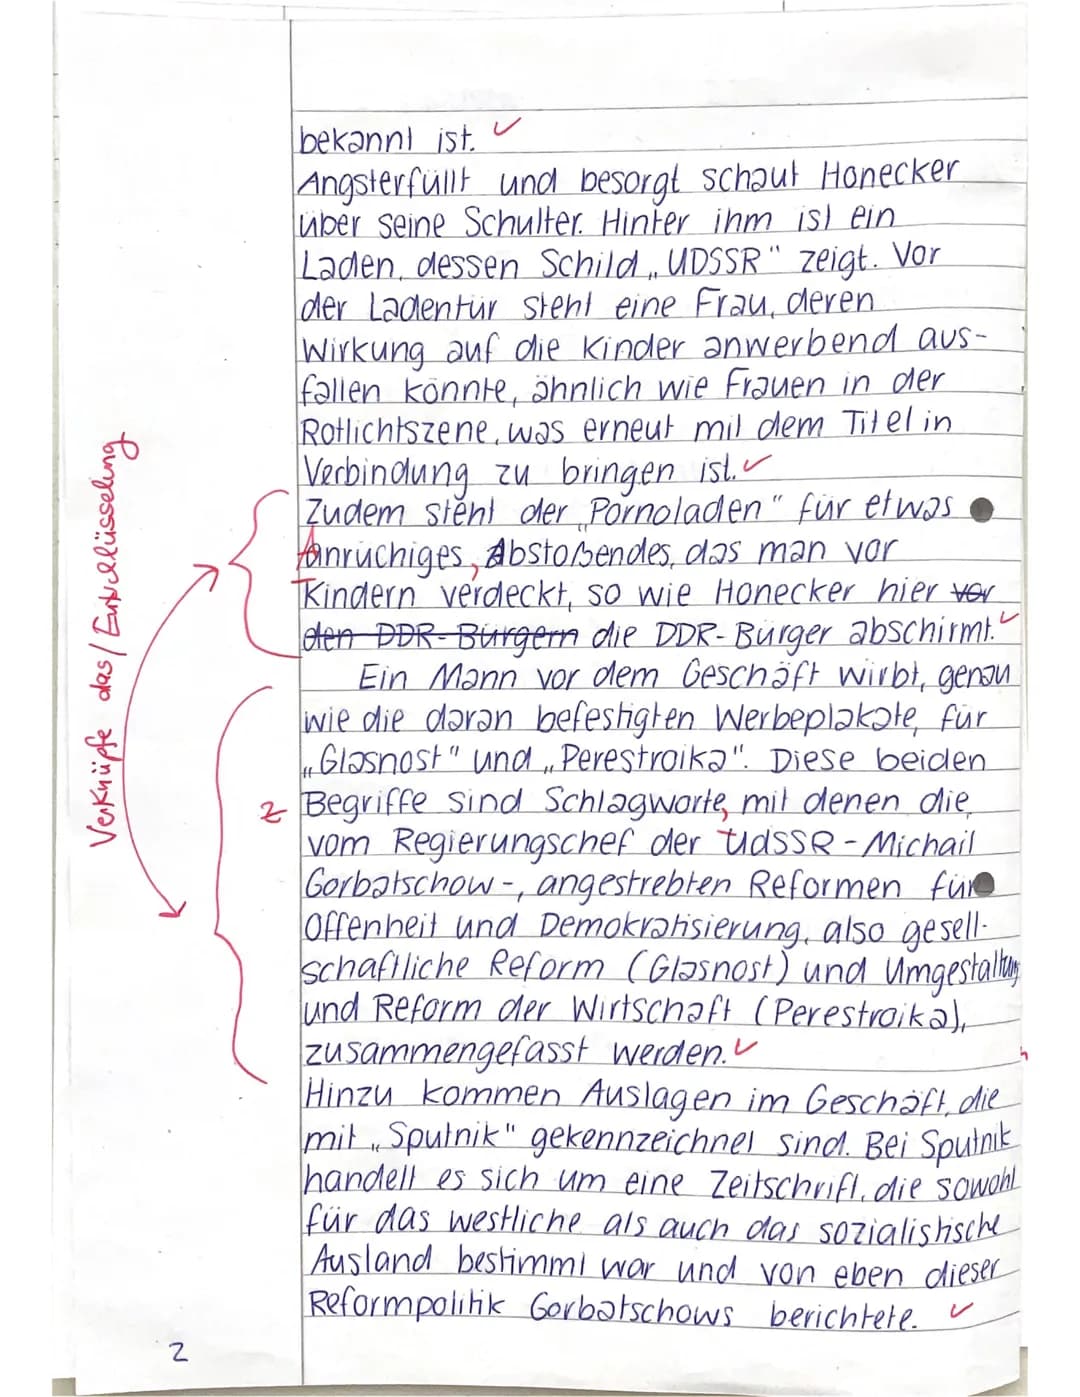 bekannt ist. ✓
Angsterfüllt und besorgt schaut Honecker
über seine Schulter. Hinter ihm ist ein
Laden, dessen Schild „UDSSR" zeigt. Vor
der Ladentür steht eine Frau, deren
Wirkung auf die Kinder anwerbend aus-
fallen könnte, ähnlich wie Frauen in der
Rotlichtszene, was erneut mit dem Titel in
Verbindung zu bringen ist. ✓
Zudem steht der „Pornoladen" für etwas
Anrüchiges, Abstoßendes, das man vor
Kindern verdeckt, so wie Honecker hier vor
den DDR-Bürgern die DDR-Bürger abschirmt. ✓
Ein Mann vor dem Geschäft wirbt, genau
wie die daran befestigten Werbeplakate, für
„Glasnost" und „Perestroika". Diese beiden
Z Begriffe sind Schlagworte, mit denen die,
vom Regierungschef der UdSSR - Michail
Gorbatschow -, angestrebten Reformen für
Offenheit und Demokratisierung, also gesell-
schaftliche Reform (Glasnost) und Umgestaltung
und Reform der Wirtschaft (Perestroika),
zusammengefasst werden. ✓
Hinzu kommen Auslagen im Geschäft, die
mit „Sputnik" gekennzeichnet sind. Bei Sputnik
handelt es sich um eine Zeitschrift, die sowohl
für das westliche als auch das sozialistische
Ausland bestimmt war und von eben dieser
Reformpolitik Gorbatschows berichtete. ✓
Verknüpfe das / Entschlüsselung
2